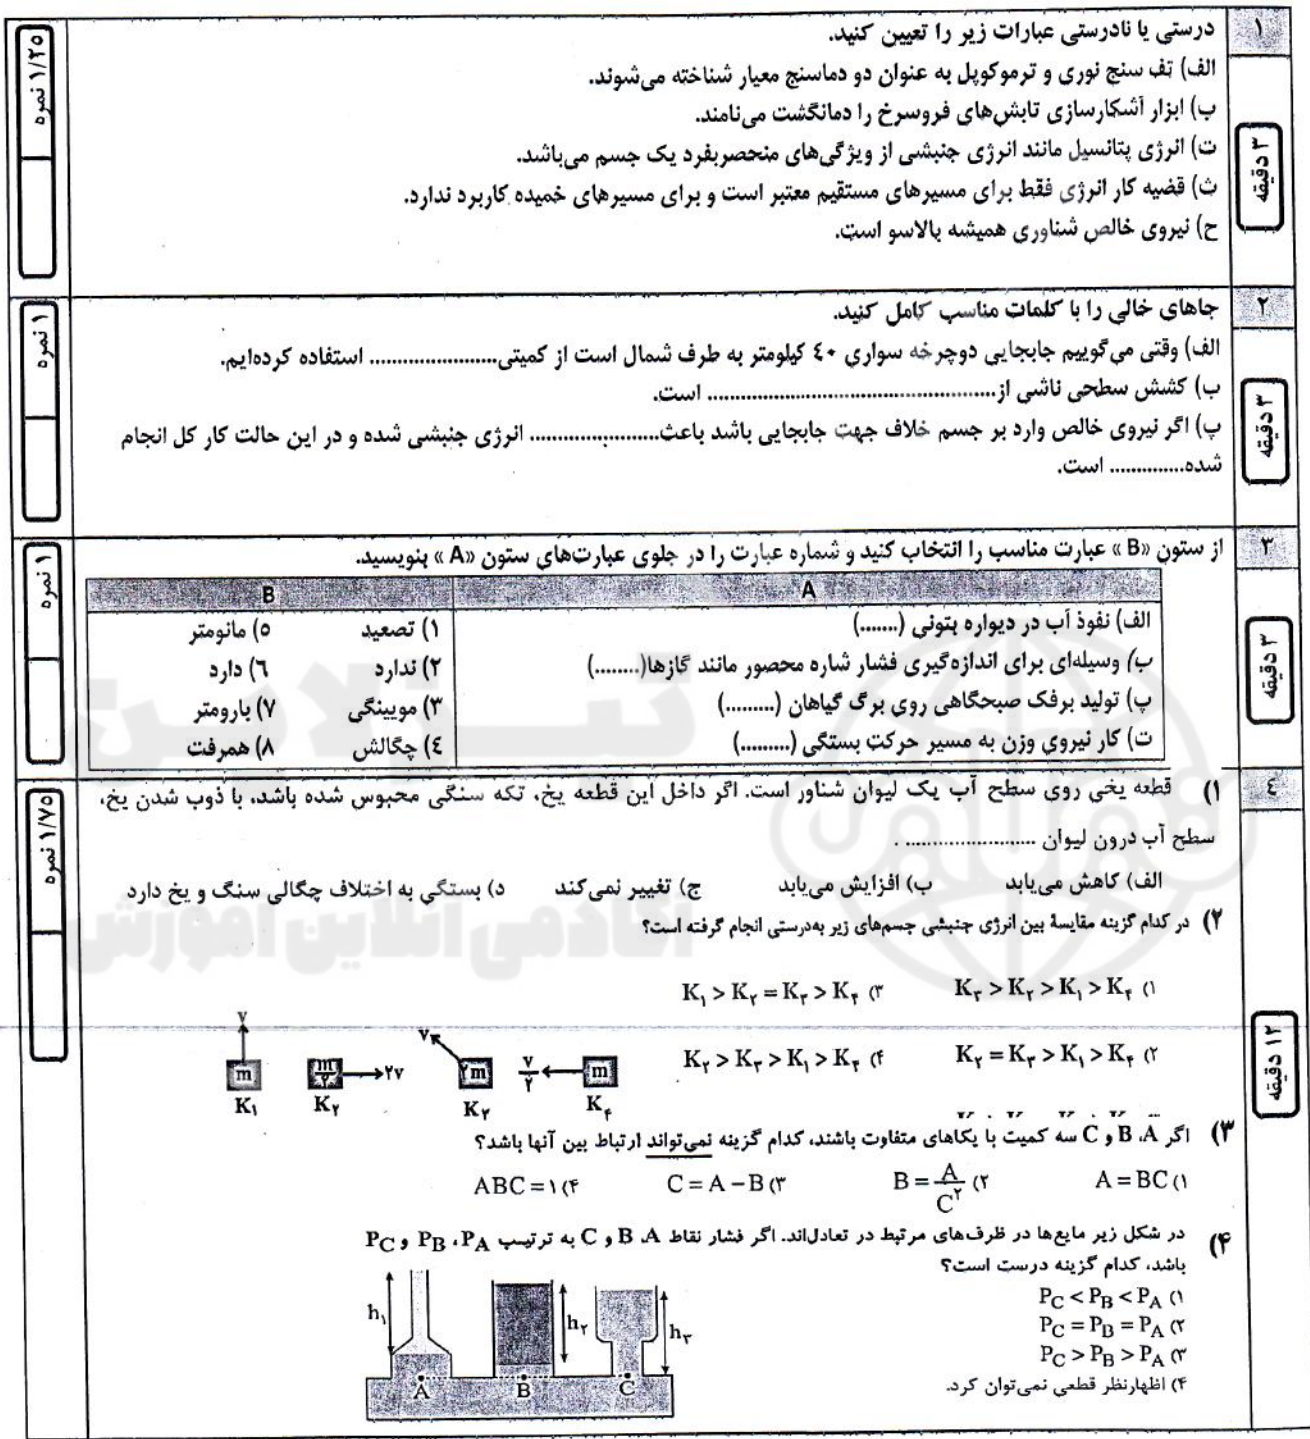 ۱
درستی یا نادرستی عبارات زیر را تعیین کنید.
۱/۲۵ نمره
۳ دقیقه
الف) تف سنج نوری و ترموکوپل به عنوان دو دماسنج معیار شناخته می‌شوند.
ب) ابزار آشکارسازی تابش‌های فروسرخ را دمانگشت می‌نامند.
ت) انرژی پتانسیل مانند انرژی جنبشی از ویژگی‌های منحصربفرد یک جسم می‌باشد.
ث) قضیه کار انرژی فقط برای مسیرهای مستقیم معتبر است و برای مسیرهای خمیده کاربرد ندارد.
ح) نیروی خالص شناوری همیشه بالاسو است.
۲
جاهای خالی را با کلمات مناسب کامل کنید.
۱ نمره
۳ دقیقه
الف) وقتی می‌گوییم جابجایی دوچرخه سواری ٤٠ کیلومتر به طرف شمال است از کمیتی....................... استفاده کرده‌ایم.
ب) کشش سطحی ناشی از.................................................. است.
پ) اگر نیروی خالص وارد بر جسم خلاف جهت جابجایی باشد باعث....................... انرژی جنبشی شده و در این حالت کار کل انجام
شده.............. است.
۳
از ستون «B» عبارت مناسب را انتخاب کنید و شماره عبارت را در جلوی عبارت‌های ستون «A» بنویسید.
۱ نمره
۳ دقیقه
A
B
الف) نفوذ آب در دیواره بتونی (.......)
۱) تصعید ٥) مانومتر
ب) وسیله‌ای برای اندازه‌گیری فشار شاره محصور مانند گازها(........)
۲) ندارد ٦) دارد
پ) تولید برفک صبحگاهی روی برگ گیاهان (.........)
۳) مویینگی ۷) بارومتر
ت) کار نیروی وزن به مسیر حرکت بستگی (.........)
٤) چگالش ۸) همرفت
٤
۱/۷۵ نمره
۱۲ دقیقه
۱) قطعه یخی روی سطح آب یک لیوان شناور است. اگر داخل این قطعه یخ، تکه سنگی محبوس شده باشد، با ذوب شدن یخ،
سطح آب درون لیوان ....................... .
الف) کاهش می‌یابد ب) افزایش می‌یابد ج) تغییر نمی‌کند د) بستگی به اختلاف چگالی سنگ و یخ دارد
۲) در کدام گزینه مقایسهٔ بین انرژی جنبشی جسم‌های زیر به‌درستی انجام گرفته است؟
۱) K۳ > K۲ > K۱ > K۴
۳) K۱ > K۲ = K۳ > K۴
۲) K۲ = K۳ > K۱ > K۴
۴) K۲ > K۳ > K۱ > K۴
v m K۱
m/۲ ۲v K۲
v ۲m K۳
v/۲ m K۴
۳) اگر A، B و C سه کمیت با یکاهای متفاوت باشند، کدام گزینه نمی‌تواند ارتباط بین آنها باشد؟
۱) A = BC
۲) B = A/C۲
۳) C = A − B
۴) ABC = ۱
۴) در شکل زیر مایع‌ها در ظرف‌های مرتبط در تعادل‌اند. اگر فشار نقاط A، B و C به ترتیب PA، PB و PC
باشد، کدام گزینه درست است؟
۱) PC < PB < PA
۲) PC = PB = PA
۳) PC > PB > PA
۴) اظهارنظر قطعی نمی‌توان کرد.
h۱ h۲ h۳
A B C
آکادمی آنلاین آموزش